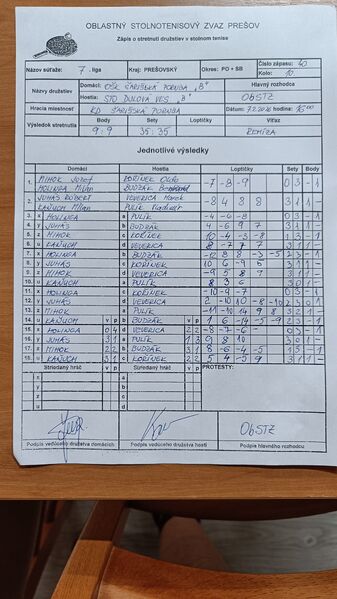 OBLASTNÝ STOLNOTENISOVÝ ZVÄZ PREŠOV
Zápis o stretnutí družstiev v stolnom tenise
Názov súťaže: 7. liga Kraj: PREŠOVSKÝ Okres: PO + SB Číslo zápasu: 40
Kolo: 10
Názov družstva Domáci: OŠK ŠARIŠSKÁ PORUBA "B" Hlavný rozhodca
Hostia: STO DULOVÁ VES "B" ObSTZ
Hracia miestnosť KD ŠARIŠSKÁ PORUBA Dátum/hodina
Výsledok stretnutia Body Sety Loptičky Víťaz
9:9 35:35 REMÍZA
Jednotlivé výsledky
Domáci Hostia Loptičky Sety Body
1. MIHOK Jozef KOŘÍNEK -7 -8 -9 0 3 - 1
HOLINGA Milan BUDZÁK
2. JUHÁS RÓBERT VEVERICA -8 4 8 8 3 1 1 -
KAŇUCH Milan PULÍK
3. x HOLINGA a PULÍK -4 -6 -8 0 3 - 1
4. y JUHÁS b BUDZÁK
5. z MIHOK c KOŘÍNEK 10 -4 -3 -8 1 3 - 1
6. u KAŇUCH d VEVERICA 3 1 1 -
7. x HOLINGA b BUDZÁK -12 8 8 -3 -5 2 3 - 1
8. y JUHÁS c KOŘÍNEK 3 1 1 -
9. z MIHOK d VEVERICA -9 5 8 9 3 1 1 -
10. u KAŇUCH a PULÍK 8 3 6 3 0 1 -
11. x HOLINGA c KOŘÍNEK -10 -9 -7 0 3 - 1
12. y JUHÁS d VEVERICA 2 -10 10 -8 -10 2 3 0 1
13. z MIHOK a PULÍK -11 -10 14 9 8 3 2 1 -
14. u KAŇUCH v p b BUDZÁK v p 1 6 -14 -5 -9 2 3 - 1
15. x HOLINGA 0 4 d VEVERICA 2 2 -8 -7 -6 0 3 - 1
16. y JUHÁS 3 1 a PULÍK 1 3 9 8 10 3 0 1 -
17. z MIHOK 2 2 b BUDZÁK 3 1 8 -6 -4 -5 1 3 - 1
18. u KAŇUCH 3 1 c KOŘÍNEK 3 1 1 -
Striedaný hráč v p Striedaný hráč v p PROTESTY:
x a
y b
z c
u d
ObSTZ
Podpis vedúceho družstva domácich Podpis vedúceho družstva hostí Podpis hlavného rozhodcu